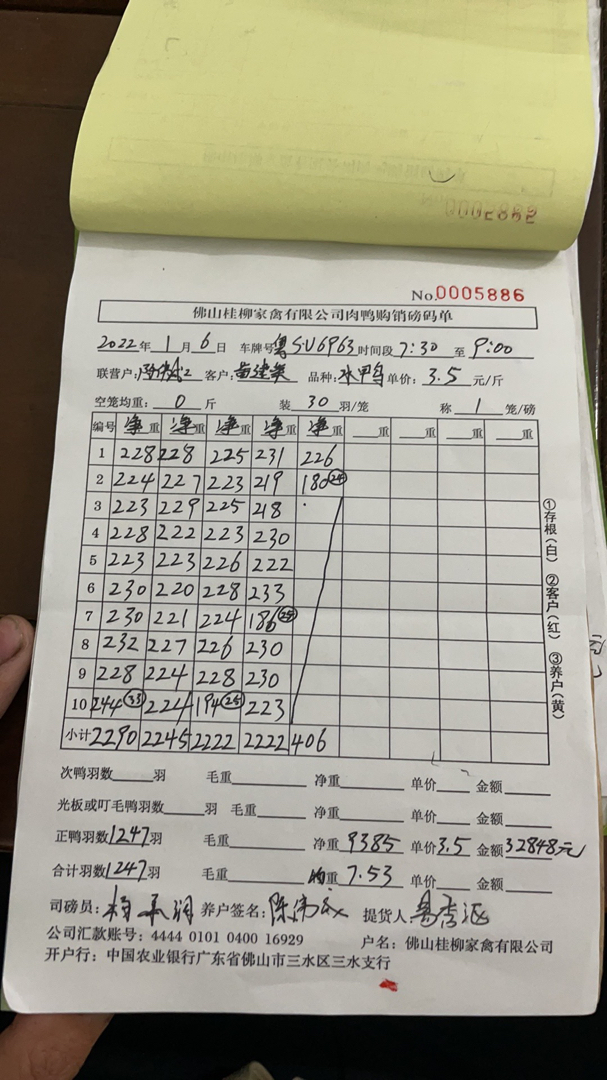 0005886
No.0005886
佛山桂柳家禽有限公司肉鸭购销磅码单
2022年1月6日 车牌号粤SU6963时间段7:30至9:00
联营户: 客户: 品种:水甲鸭单价:3.5元/斤
空笼均重:0斤 装30羽/笼 称1笼/磅
编号 净重 净重 净重 净重 净重 重 重 重 重
1 228 228 225 231 226
2 224 227 223 219 180(24)
3 223 229 225 218
4 228 222 223 230
5 223 223 226 222
6 230 220 228 233
7 230 221 224 186(25)
8 232 227 226 230
9 228 224 228 230
10 244(33) 224 194(25) 223
小计 2290 2245 2222 2222 406
①存根(白) ②客户(红) ③养户(黄)
次鸭羽数 羽 毛重 净重 单价 金额
光板或叮毛鸭羽数 羽 毛重 净重 单价 金额
正鸭羽数1247羽 毛重 净重9385 单价3.5 金额32848元
合计羽数1247羽 毛重 均重7.53 单价 金额
司磅员: 养户签名: 提货人
公司汇款账号: 4444 0101 0400 16929 户名: 佛山桂柳家禽有限公司
开户行: 中国农业银行广东省佛山市三水区三水支行